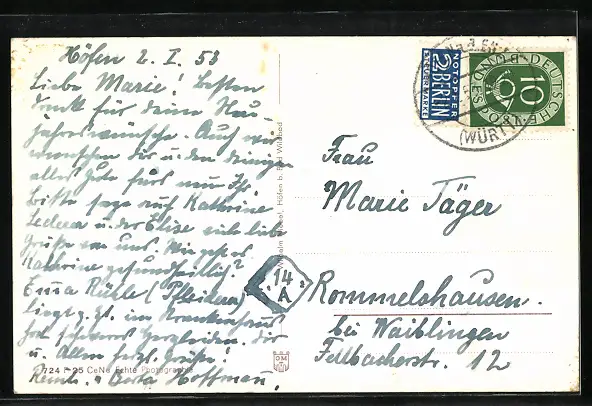 Höfen 2. I. 53
Liebe Marie! Besten
Dank für deine Neu-
jahreswünsche. Auch wir
wünschen dir u. den deinigen
alles Gute fürs neue Jahr.
Bitte sage auch Kathrine
u. der Elise viele liebe
Grüße von uns. Wie geht es
Kathrine gesundheitlich?
Emma Rühle (Pfleiderer)
liegt z. Zt. im Krankenhaus
hat schweres Herzleiden. dir
u. Allen herzl. Grüße!
Berta Hoffman.
724 F 25 CeNa Echte Photographie
Höfen b. Bad Wildbad
NOTOPFER
2 BERLIN
STEUERMARKE
DEUTSCHE BUNDESPOST
10
(WÜRTT)
14
A
Frau
Marie Jäger
Rommelshausen.
bei Waiblingen
Fellbacherstr. 12